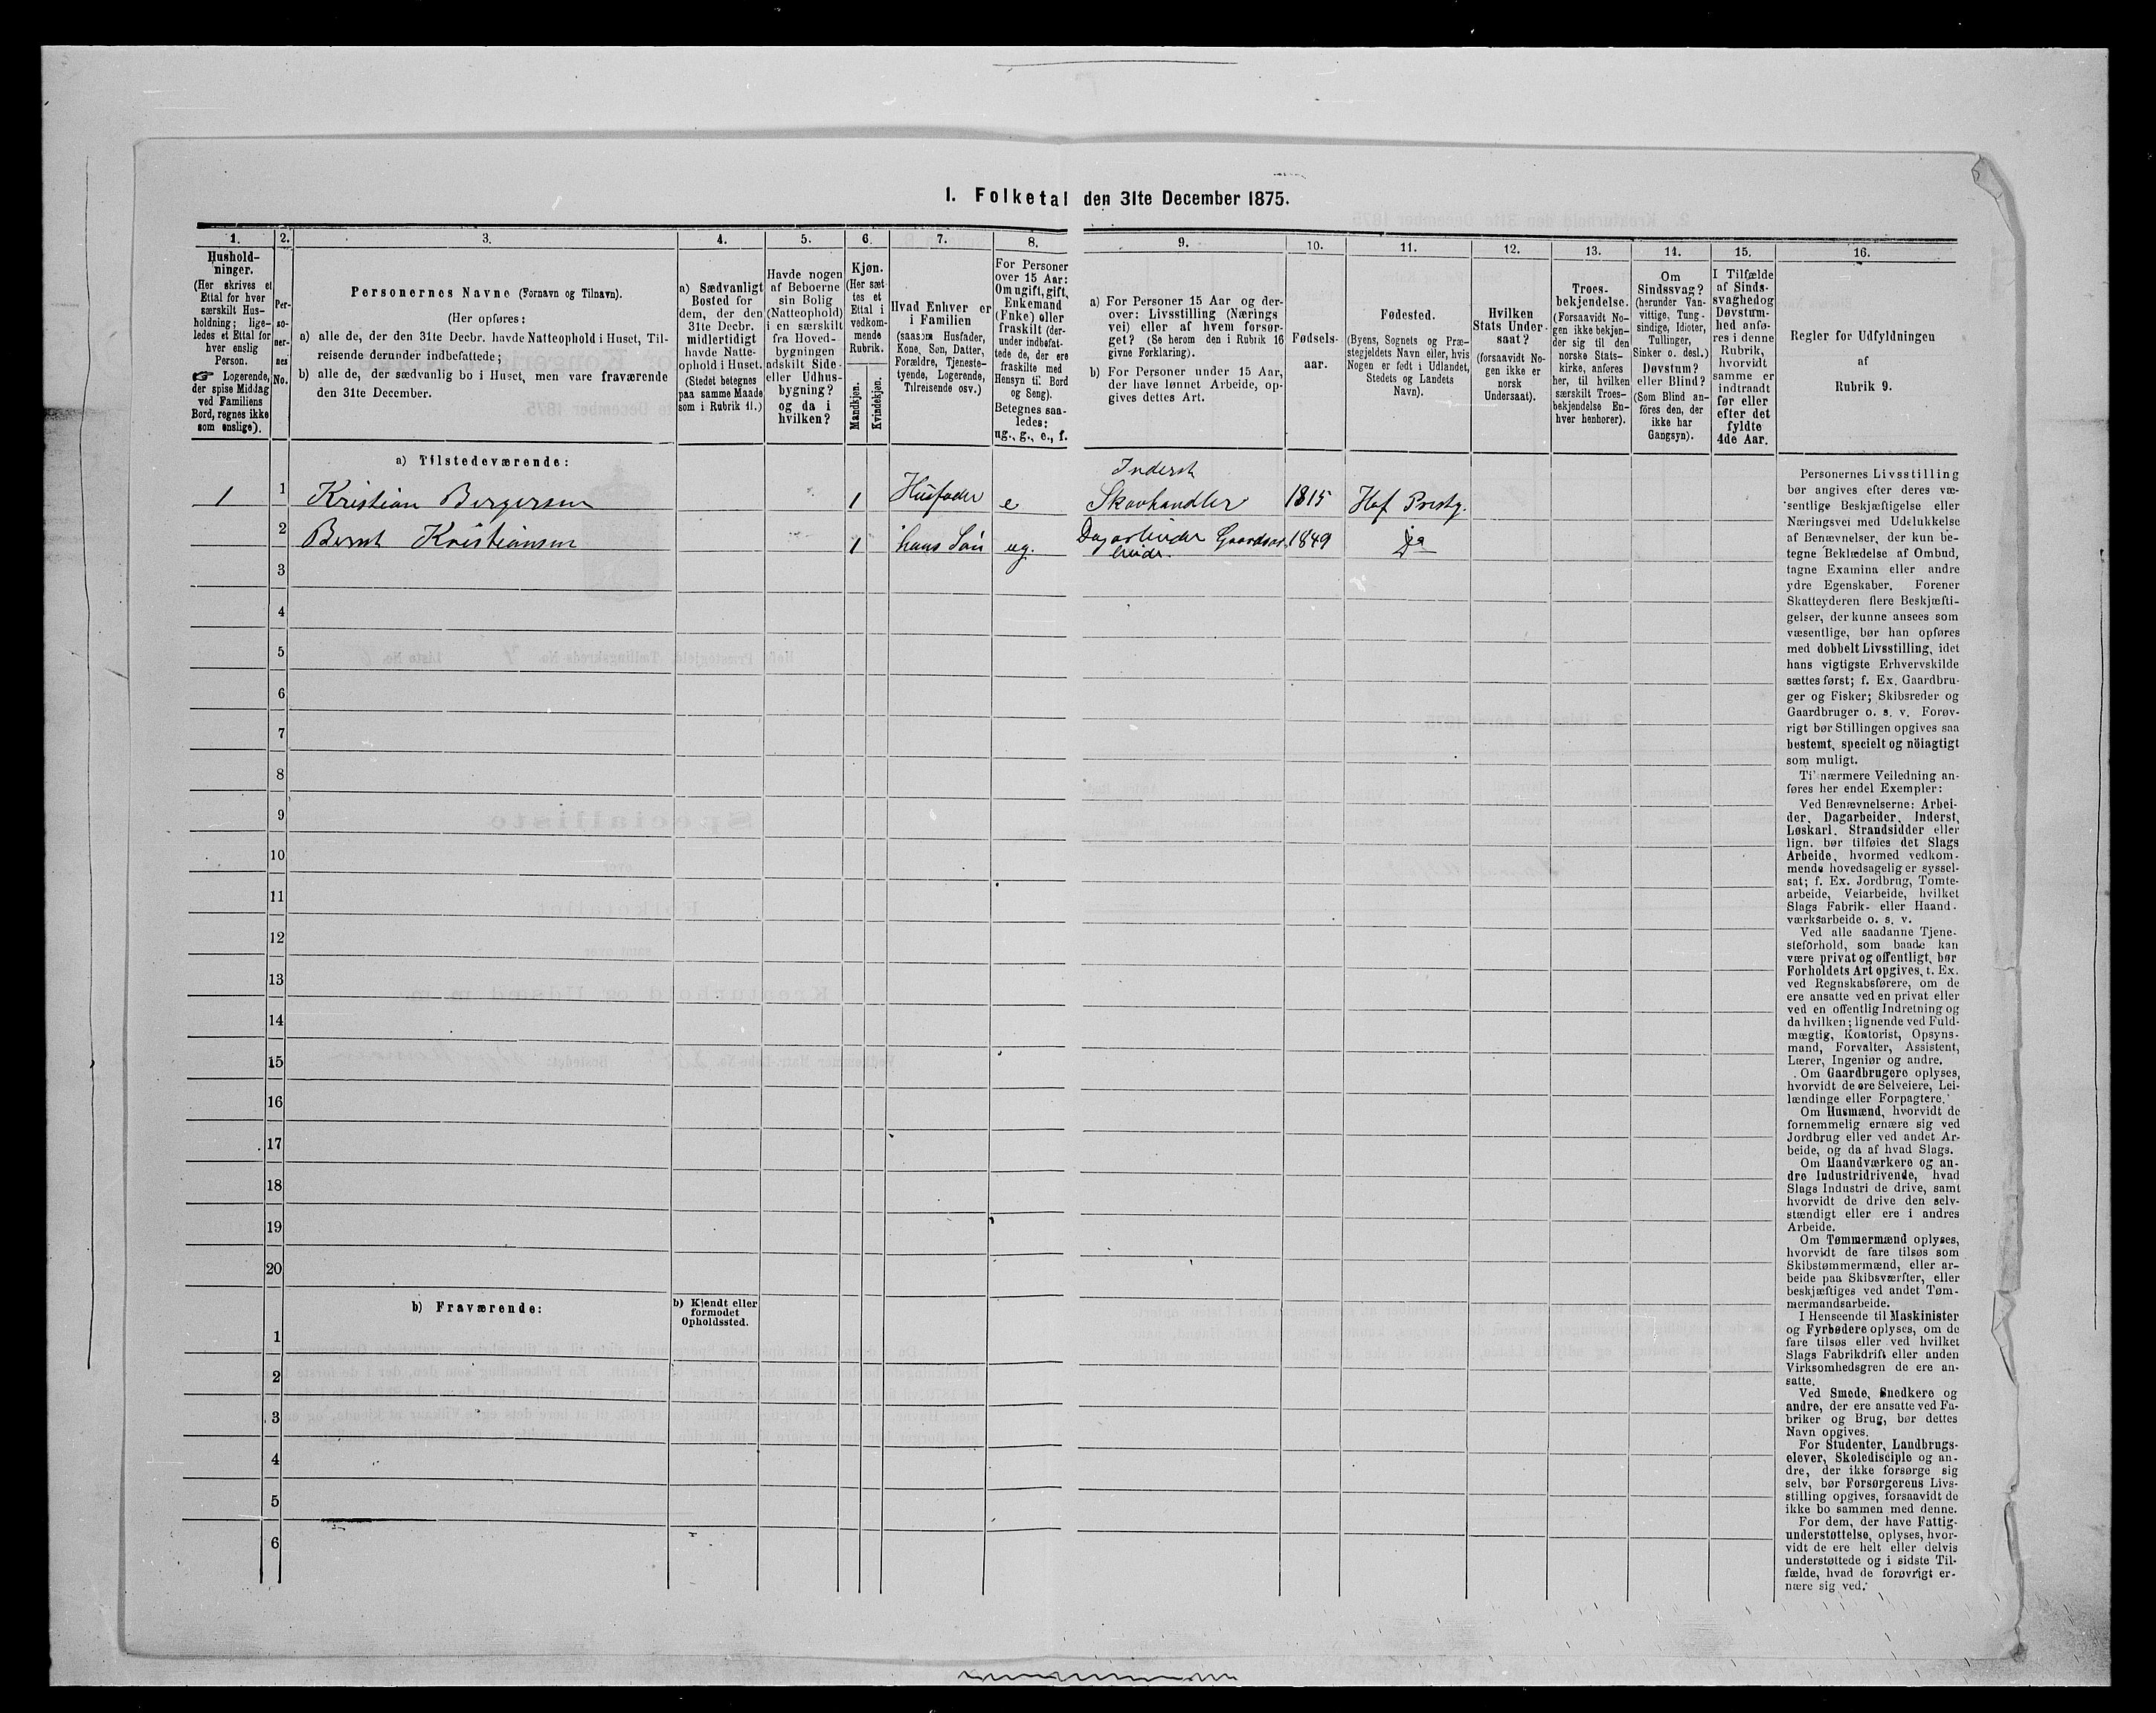 1. Folketal den 31te December 1875.
1.
2.
3.
4.
5.
6.
7.
8.
9.
10.
11.
12.
13.
14.
15.
16.
Hushold-
ninger.
(Her skrives et
Ettal for hver
særskilt Hus-
holdning; lige-
ledes et Ettal for
hver enslig
Person.
☞ Logerende,
der spise Middag
ved Familiens
Bord, regnes ikke
som enslige).
Per-
so-
ner-
nes
No.
Personernes Navne (Fornavn og Tilnavn).
(Her opføres:
a) alle de, der den 31te Decbr. havde Natteophold i Huset, Til-
reisende derunder indbefattede;
b) alle de, der sædvanlig bo i Huset, men vare fraværende
den 31te December.
a) Sædvanligt
Bosted for
dem, der den
31te Decbr.
midlertidigt
havde Natte-
ophold i Huset.
(Stedet betegnes
paa samme Maade
som i Rubrik 11.)
Havde nogen
af Beboerne
sin Bolig
(Natteophold)
i en særskilt
fra Hoved-
bygningen
adskilt Side-
eller Udhus-
bygning?
og da i
hvilken?
Kjøn.
(Her sæt-
tes et
Ettal i
vedkom-
mende
Rubrik.
Mandkjøn.
Kvindekjøn.
Hvad Enhver er
i Familien
(saasom Husfader,
Kone, Søn, Datter,
Forældre, Tjeneste-
tyende, Logerende,
Tilreisende osv.)
For Personer
over 15 Aar:
Om ugift, gift,
Enkemand
(Enke) eller
fraskilt (der-
under indbefat-
tede de, der ere
fraskilte med
Hensyn til Bord
og Seng).
Betegnes saa-
ledes:
ug., g., e., f.
a) For Personer 15 Aar og der-
over: Livsstilling (Nærings
vei) eller af hvem forsør-
get? (Se herom den i Rubrik 16
givne Forklaring).
b) For Personer under 15 Aar,
der have lønnet Arbeide, op-
gives dettes Art.
Fødsels-
aar.
Fødested.
(Byens, Sognets og Præ-
stegjeldets Navn eller, hvis
Nogen er født i Udlandet,
Stedets og Landets
Navn).
Hvilken
Stats Under-
saat?
(forsaavidt No-
gen ikke er
norsk
Undersaat).
Troes-
bekjendelse.
(Forsaavidt No-
gen ikke bekjen-
der sig til den
norske Stats-
kirke, anføres
her, til hvilken
særskilt Troes-
bekjendelse En-
hver henhører).
Om
Sindssvag?
(herunder Van-
vittige, Tung-
sindige, Idioter,
Tullinger,
Sinker o. desl.)
Døvstum?
eller Blind?
(Som Blind an-
føres den, der
ikke har
Gangsyn).
I Tilfælde
af Sinds-
svaghed og
Døvstum-
hed anfø-
res i denne
Rubrik,
hvorvidt
samme er
indtraadt
før eller
efter det
fyldte
4de Aar.
Regler for Udfyldningen
af
Rubrik 9.
a) Tilstedeværende:
1
1
Kristian Bergersen
1
Husfader
e
Inderst
Skovhandler
1815
Hof Prestg.
2
Bernt Kristiansen
1
hans Søn
ug.
Dagarbeider Gaardsar-
beide.
1849
3
4
5
6
7
8
9
10
11
12
13
14
15
16
17
18
19
20
b) Fraværende:
b) Kjendt eller
formodet
Opholdssted.
1
2
3
4
5
6
Personernes Livsstilling
bør angives efter deres væ-
sentlige Beskjæftigelse eller
Næringsvei med Udelukkelse
af Benævnelser, der kun be-
tegne Beklædelse af Ombud,
tagne Examina eller andre
ydre Egenskaber. Forener
Skatteyderen flere Beskjæfti-
gelser, der kunne ansees som
væsentlige, bør han opføres
med dobbelt Livsstilling, idet
hans vigtigste Erhvervskilde
sættes først; f. Ex. Gaardbru-
ger og Fisker; Skibsreder og
Gaardbruger o. s. v. Forøv-
rigt bør Stillingen opgives saa
bestemt, specielt og nöiagtigt
som muligt.
Til nærmere Veiledning an-
føres her endel Exempler:
Ved Benævnelserne: Arbei-
der, Dagarbeider, Inderst,
Løskarl, Strandsidder eller
lign. bør tilføies det Slags
Arbeide, hvormed vedkom-
mende hovedsagelig er syssel-
sat; f. Ex. Jordbrug, Tomte-
arbeide, Veiarbeide, hvilket
Slags Fabrik- eller Haand-
værksarbeide o. s. v.
Ved alle saadanne Tjene-
steforhold, som baade kan
være privat og offentligt, bør
Forholdets Art opgives, t. Ex.
ved Regnskabsførere, om de
ere ansatte ved en privat eller
ved en offentlig Indretning og
da hvilken; lignende ved Fuld-
mægtig, Kontorist, Opsyns-
mand, Forvalter, Assistent,
Lærer, Ingeniør og andre.
Om Gaardbrugere oplyses,
hvorvidt de ere Selveiere, Lei-
lændinge eller Forpagtere.
Om Husmænd, hvorvidt de
fornemmelig ernære sig ved
Jordbrug eller ved andet Ar-
beide, og da af hvad Slags.
Om Haandværkere og an-
dre Industridrivende, hvad
Slags Industri de drive, samt
hvorvidt de drive den selv-
stændigt eller ere i andres
Arbeide.
Om Tømmermænd oplyses,
hvorvidt de fare tilsøs som
Skibstømmermænd, eller ar-
beide paa Skibsværfter, eller
beskjæftiges ved andet Tøm-
mermandsarbeide.
I Henseende til Maskinister
og Fyrbødere oplyses, om de
fare tilsøs eller ved hvilket
Slags Fabrikdrift eller anden
Virksomhedsgren de ere an-
satte.
Ved Smede, Snedkere og
andre, der ere ansatte ved Fa-
briker og Brug, bør dettes
Navn opgives.
For Studenter, Landbrugs-
elever, Skoledisciple og an-
dre, der ikke forsørge sig
selv, bør Forsørgerens Livs-
stilling opgives, forsaavidt de
ikke bo sammen med denne.
For dem, der have Fattig-
understøttelse, oplyses, hvor-
vidt de ere helt eller delvis
understøttede og i sidste Til-
fælde, hvad de forøvrigt er-
nære sig ved.